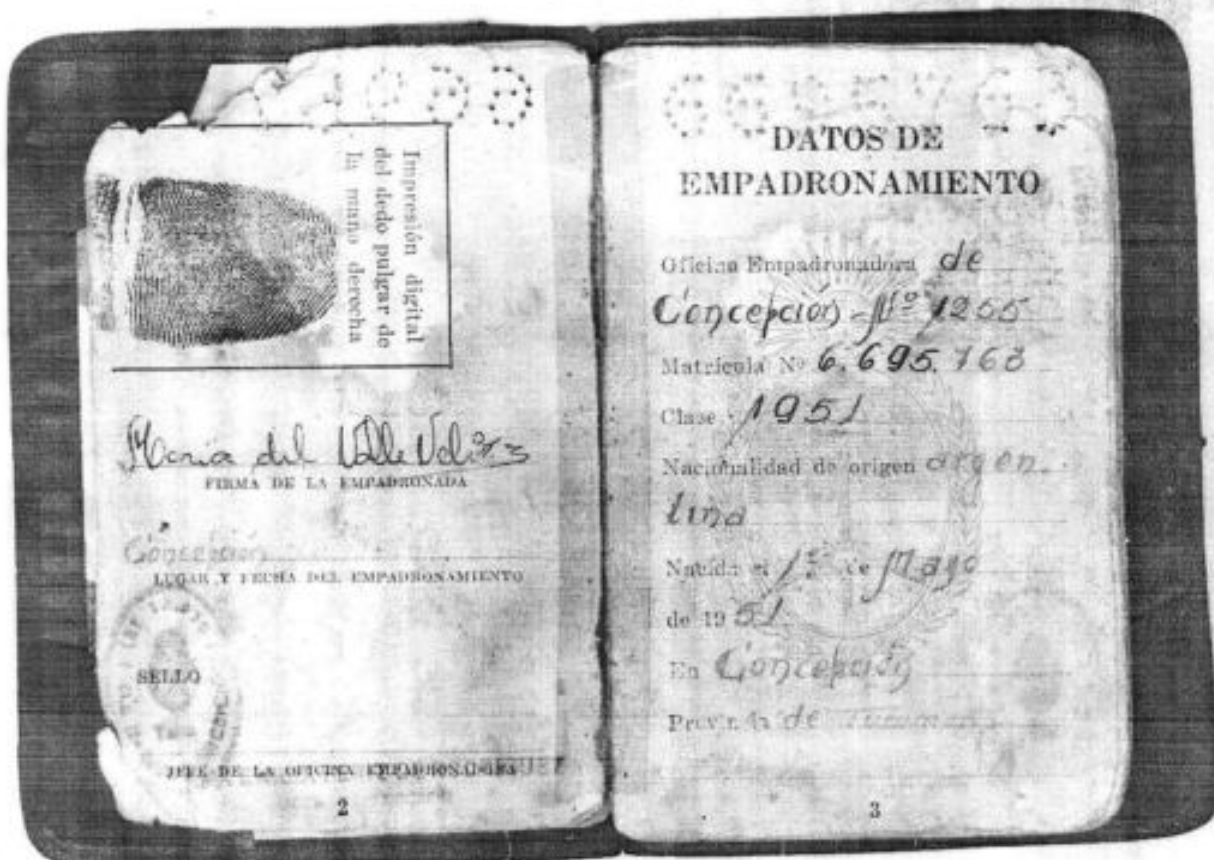 Impresión digital
del dedo pulgar de
la mano derecha
María del Valle Veliz
FIRMA DE LA EMPADRONADA
Concepción
LUGAR Y FECHA DEL EMPADRONAMIENTO
SELLO
JEFE DE LA OFICINA EMPADRONADORA
2
DATOS DE
EMPADRONAMIENTO
Oficina Empadronadora de
Concepción - Nº 1255
Matrícula Nº 6.695.763
Clase 1951
Nacionalidad de origen argen
tina
Nacida el 1º de Mayo
de 1951
En Concepción
Provincia de Tucumán
3